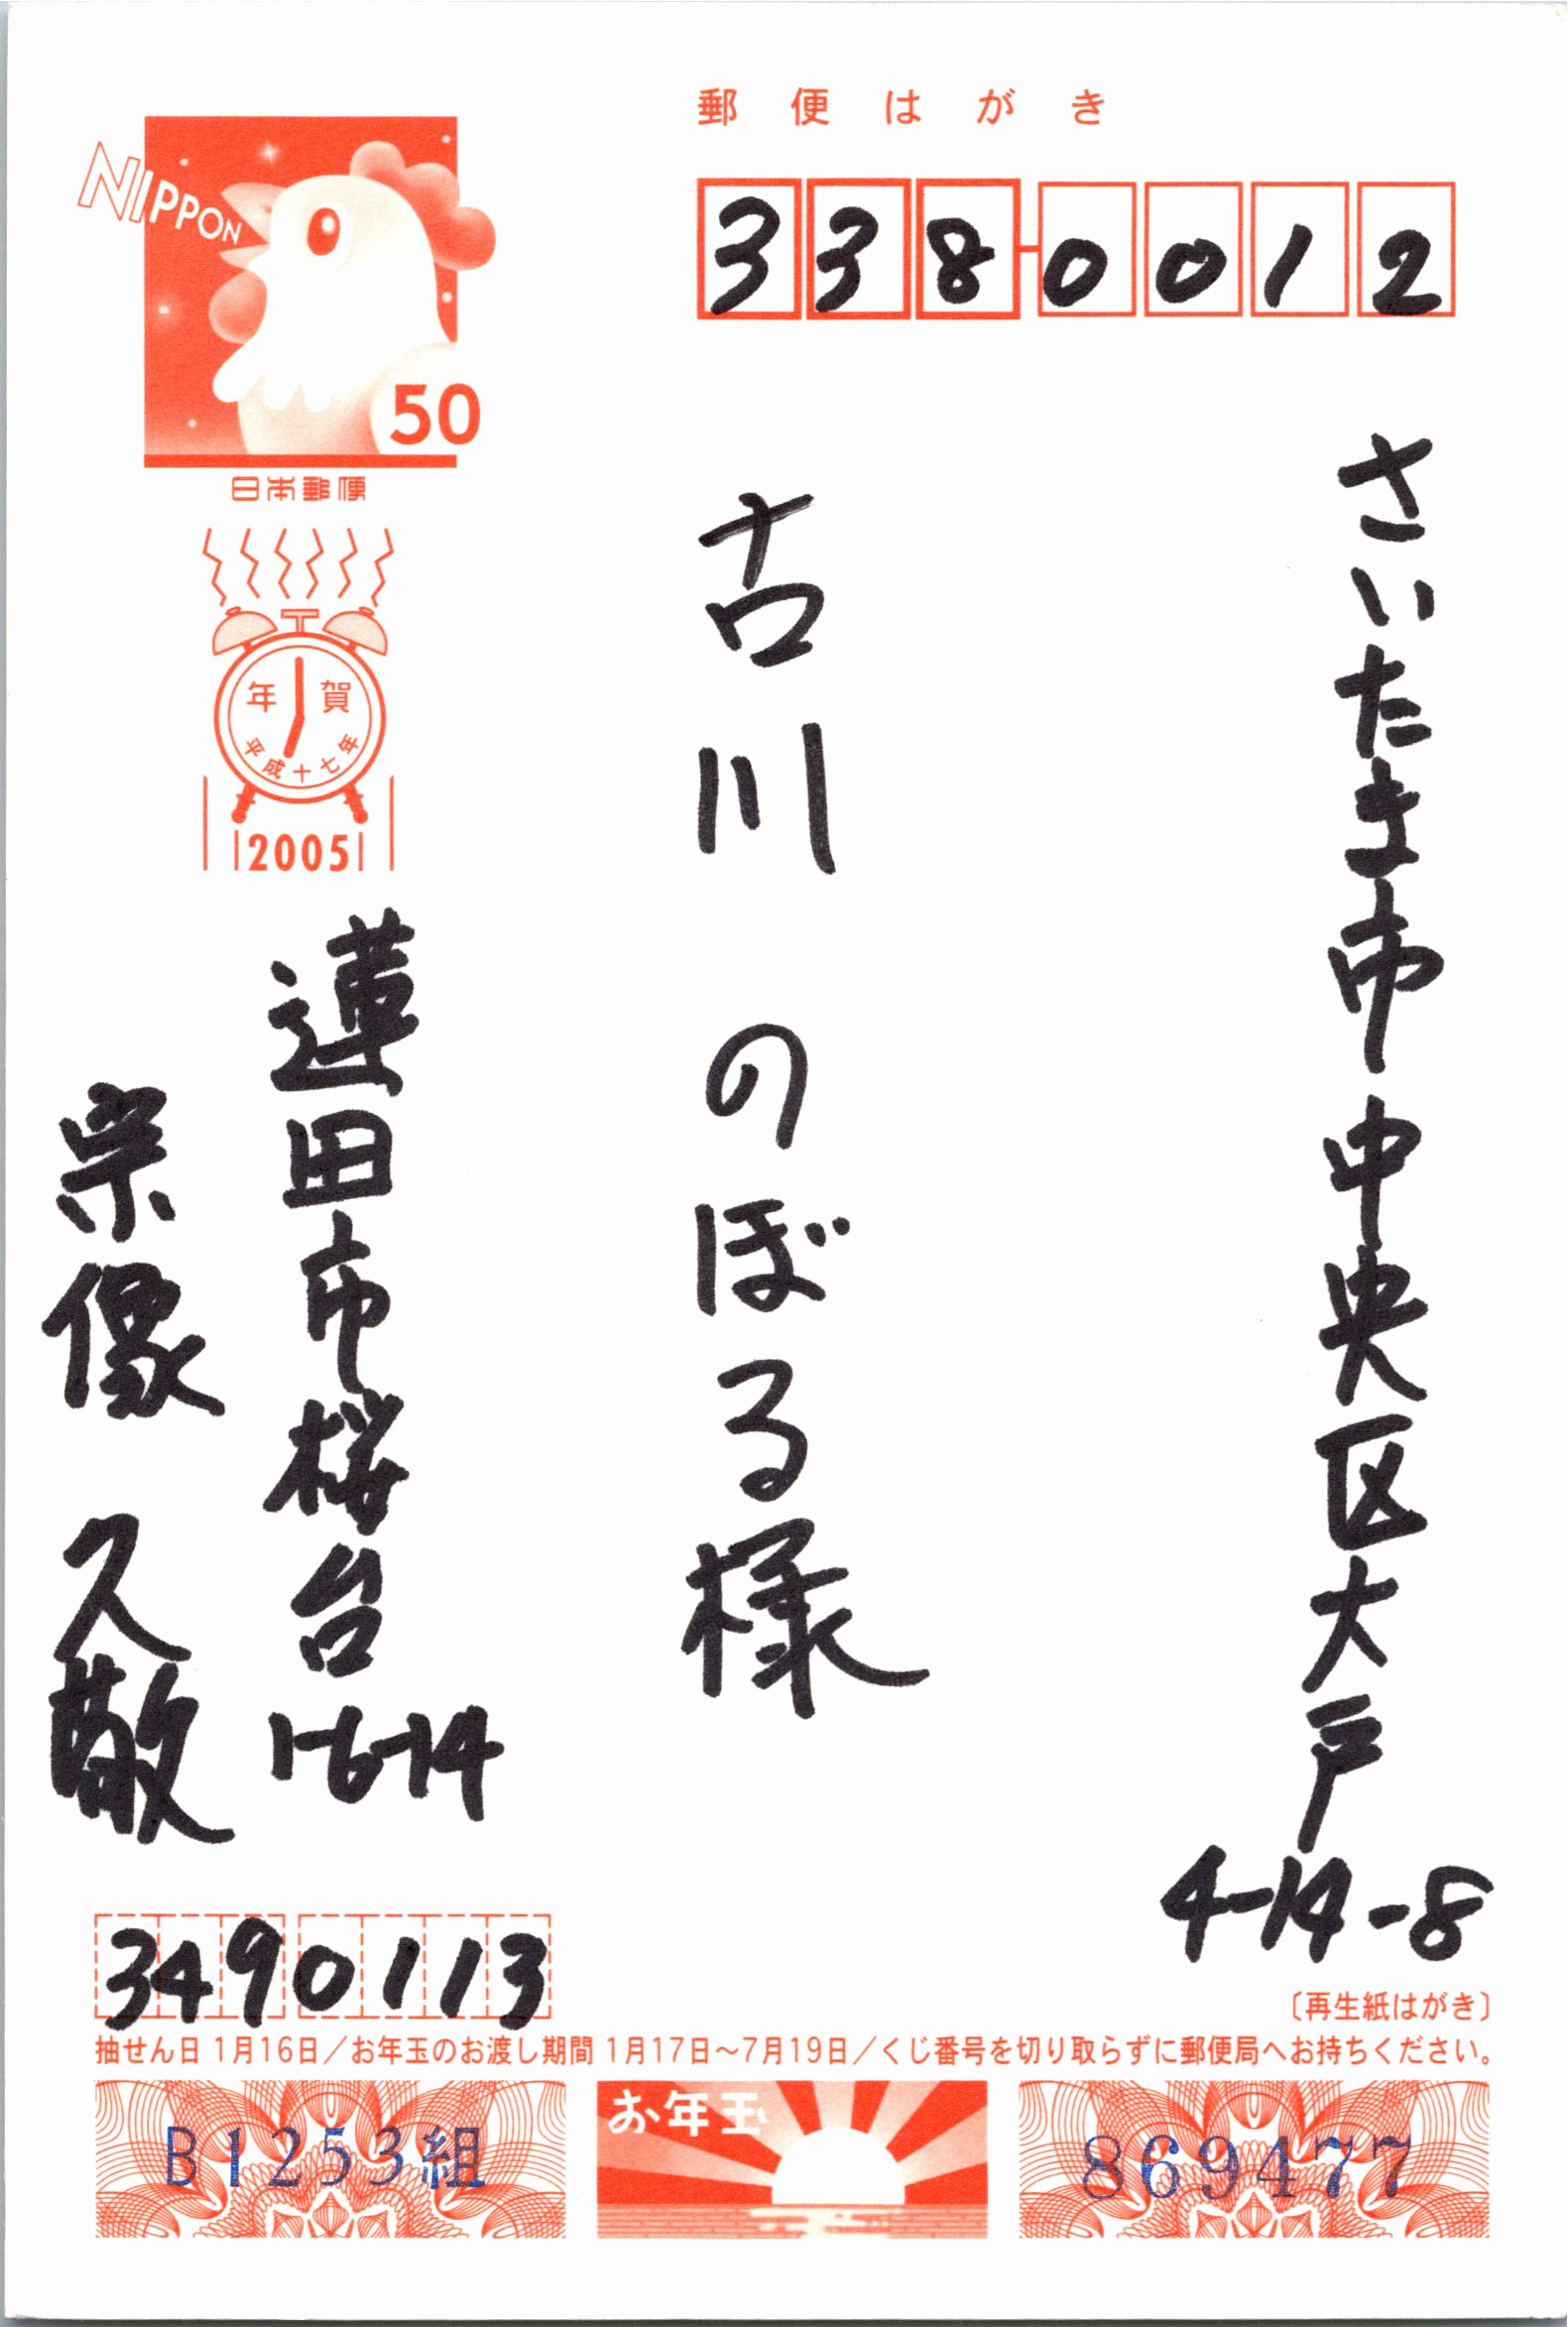 郵便はがき
NIPPON
50
日本郵便
338-0012
さいたま市中央区大戸
4-14-8
古川のぼる様
年賀
平成十七年
2005
蓮田市桜台1-6-14
宗像 久敬
3490113
〔再生紙はがき〕
抽せん日 1月16日／お年玉のお渡し期間 1月17日〜7月19日／くじ番号を切り取らずに郵便局へお持ちください。
B1253組
お年玉
869477